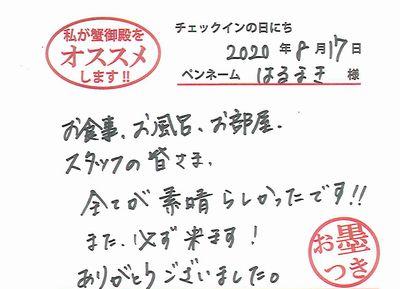 私が蟹御殿を
オススメ
します!!
チェックインの日にち
2020 年 8 月 17 日
ペンネーム はるまき 様
お食事、お風呂、お部屋、
スタッフの皆さま、
全てが素晴らしかったです!!
また、必ず来ます!
ありがとうございました。
お墨
つき